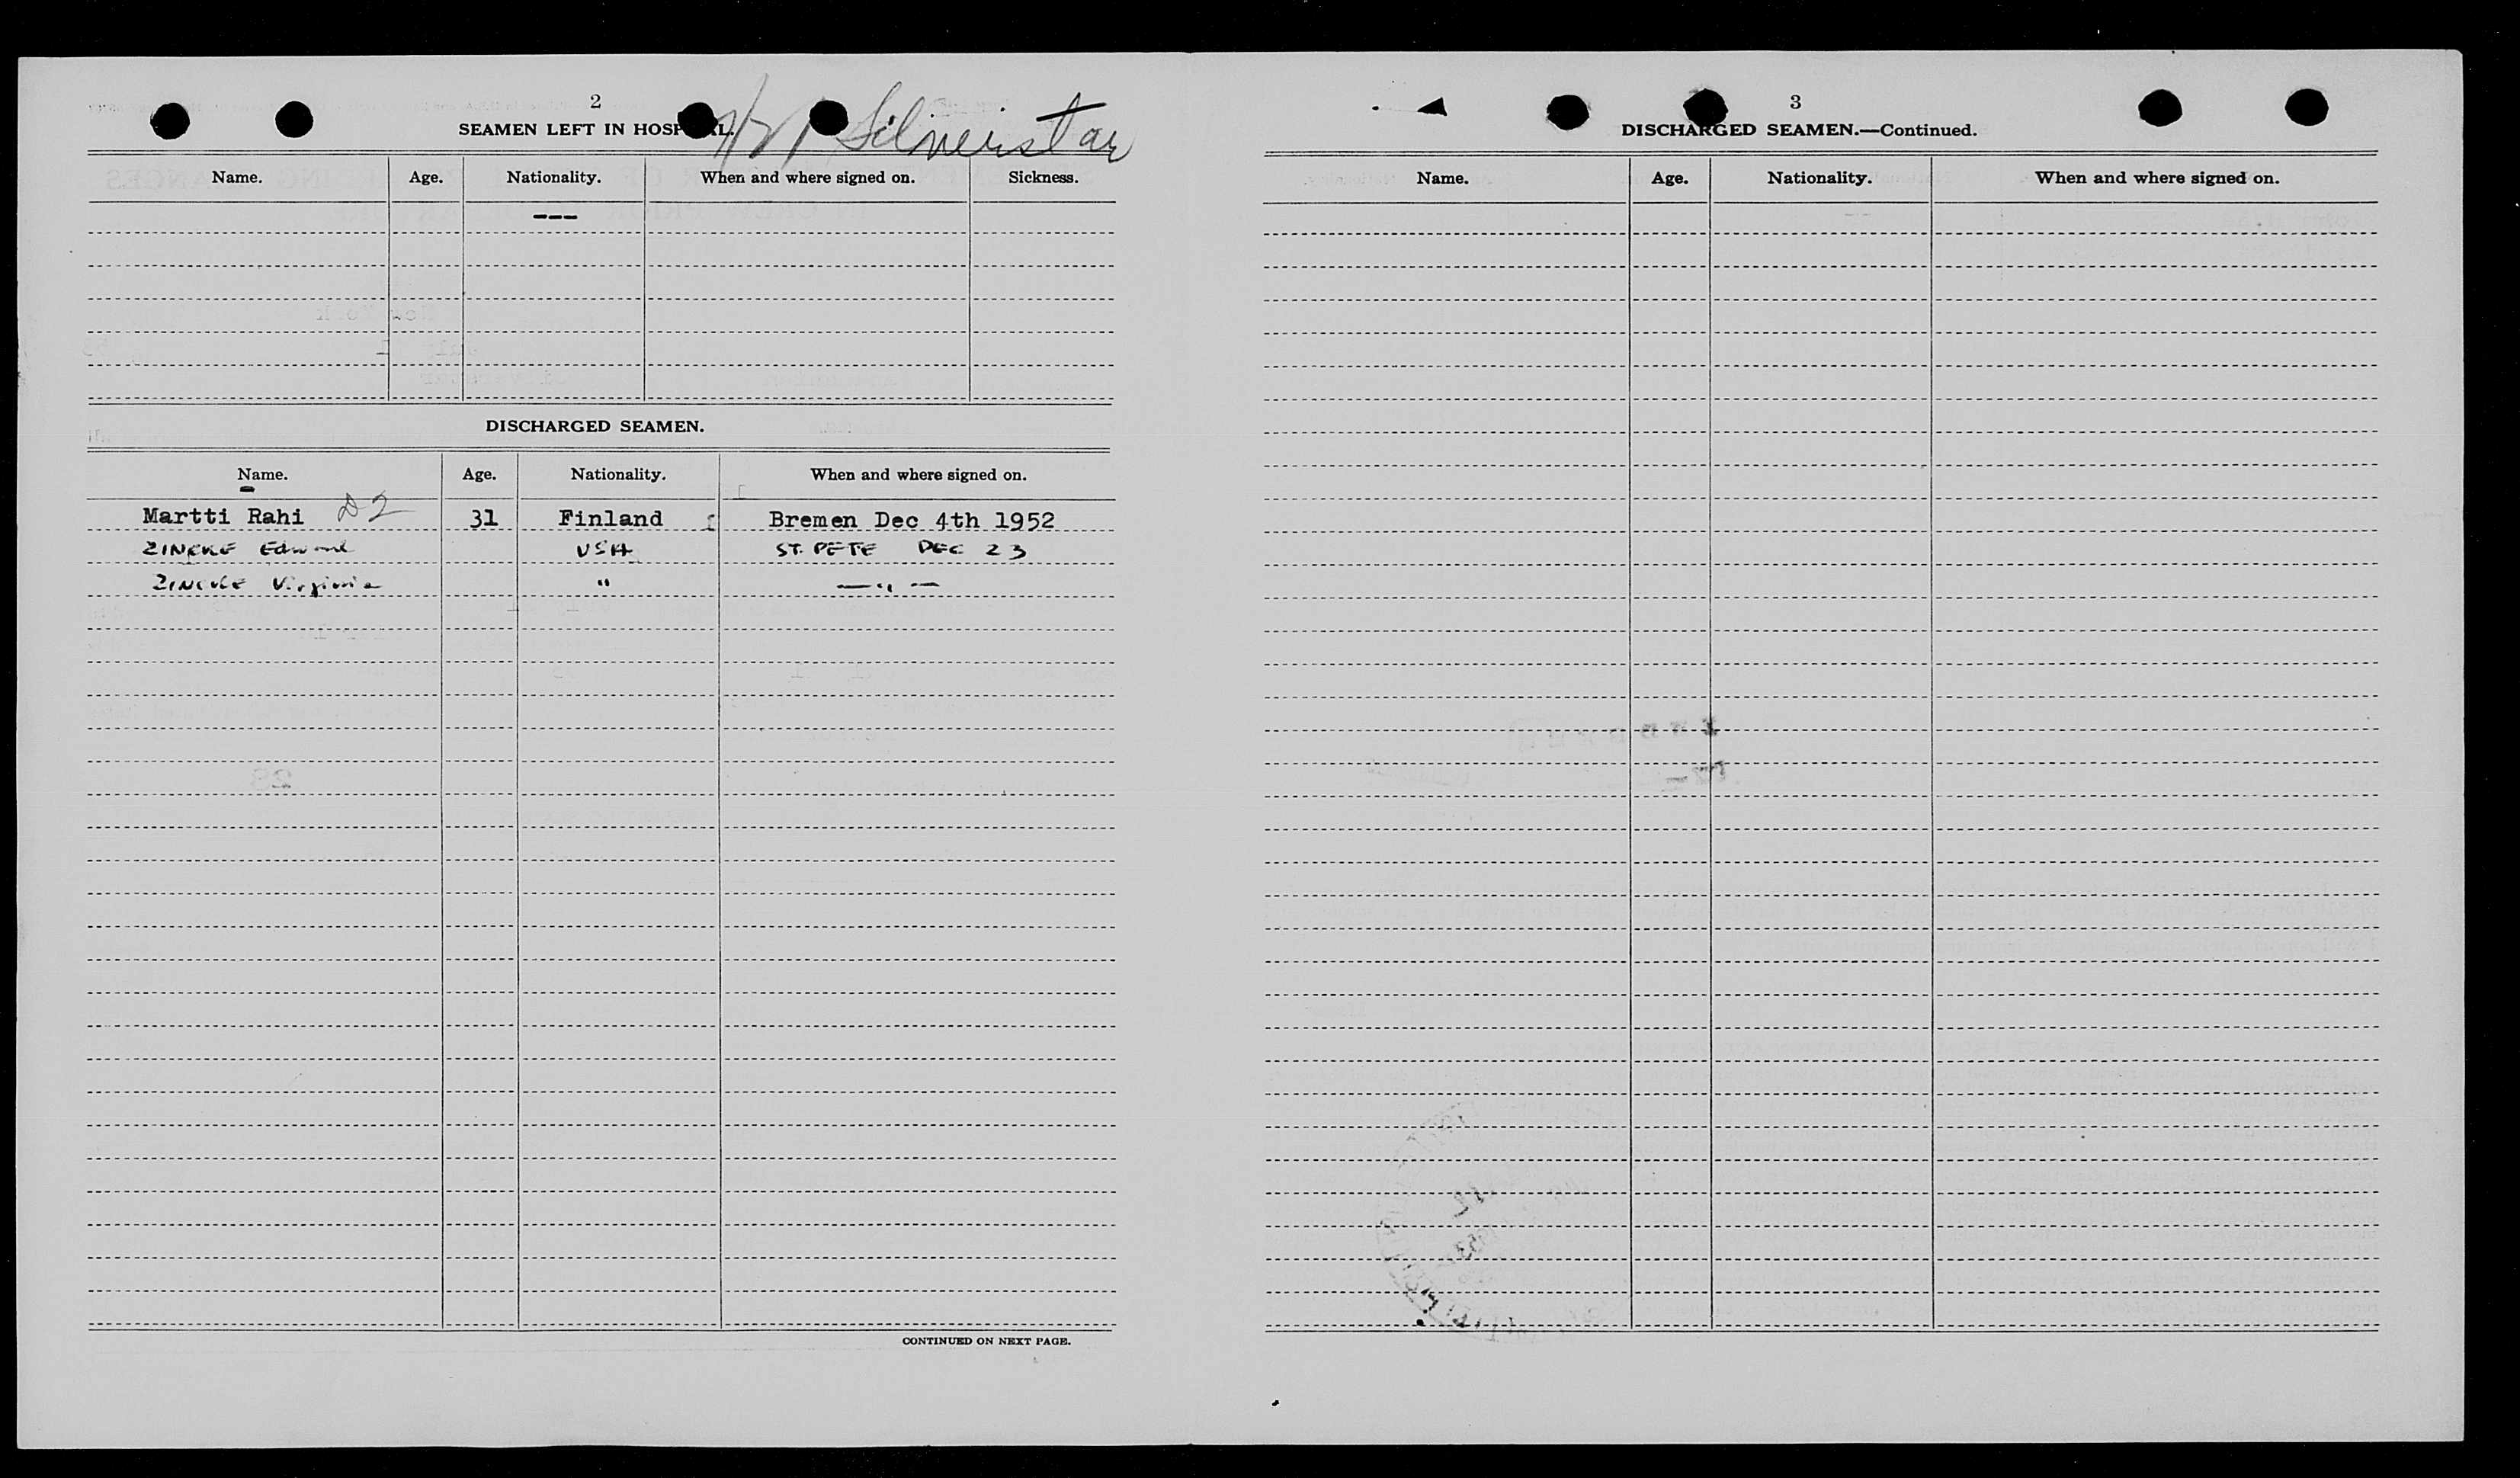 2
SEAMEN LEFT IN HOSPITAL.
Silverstar
Name. Age. Nationality. When and where signed on. Sickness.
---
DISCHARGED SEAMEN.
Name. Age. Nationality. When and where signed on.
Martti Rahi D2 31 Finland Bremen Dec 4th 1952
ZINCKE Edward USA ST. PETE DEC 23
ZINCKE Virginia " —"—
CONTINUED ON NEXT PAGE.
3
DISCHARGED SEAMEN.—Continued.
Name. Age. Nationality. When and where signed on.